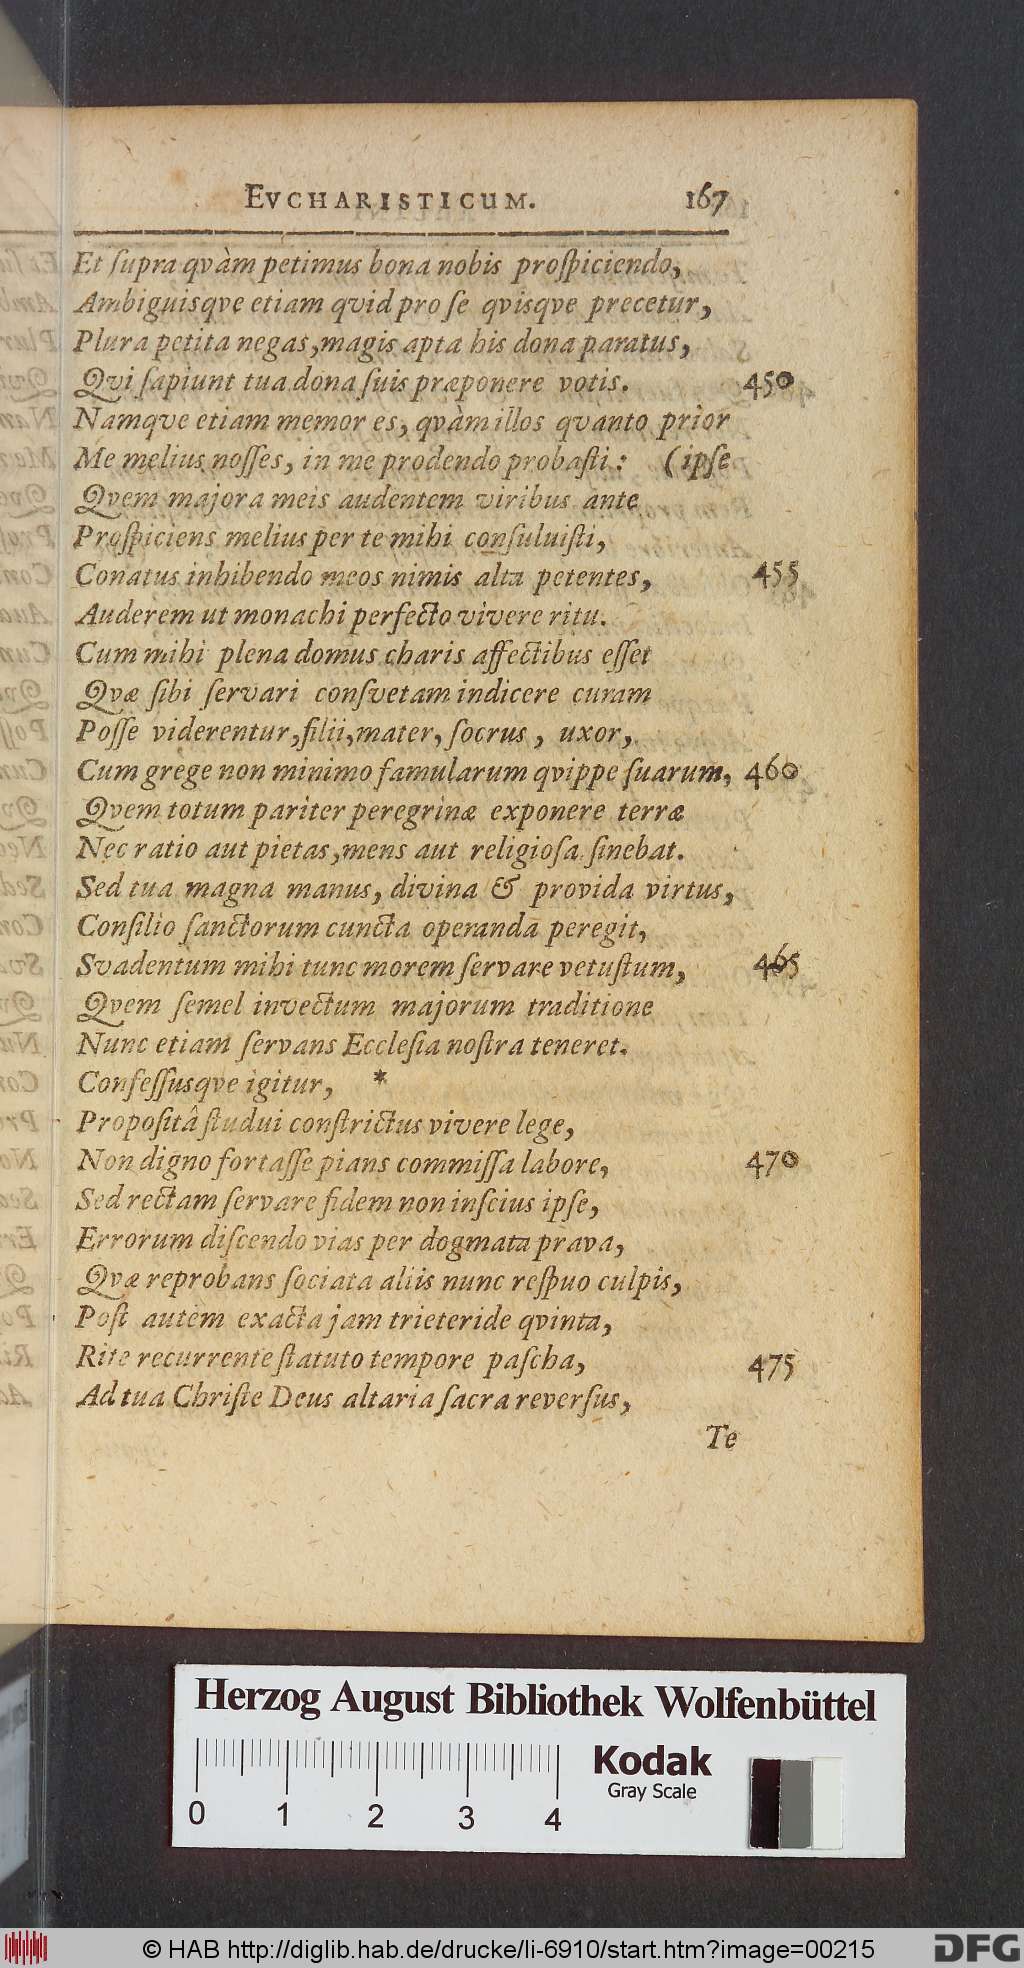 EVCHARISTICUM. 167
Et ſupra qvàm petimus bona nobis proſpiciendo,
Ambiguisqve etiam qvid pro ſe qvisqve precetur,
Plura petita negas, magis apta his dona paratus,
Qvi ſapiunt tua dona ſuis præponere votis. 450
Namqve etiam memor es, qvàm illos qvanto prior
Me melius noſſes, in me prodendo probaſti: (ipſe
Qvem majora meis audentem viribus ante
Proſpiciens melius per te mihi conſuluiſti,
Conatus inhibendo meos nimis alta petentes, 455
Auderem ut monachi perfecto vivere ritu.
Cum mihi plena domus charis affectibus eſſet
Qvæ ſibi ſervari conſvetam indicere curam
Poſſe viderentur, filii, mater, ſocrus, uxor,
Cum grege non minimo famularum qvippe ſuarum, 460
Qvem totum pariter peregrinæ exponere terræ
Nec ratio aut pietas, mens aut religioſa ſinebat.
Sed tua magna manus, divina & provida virtus,
Conſilio ſanctorum cuncta operanda peregit,
Svadentum mihi tunc morem ſervare vetuſtum, 465
Qvem ſemel invectum majorum traditione
Nunc etiam ſervans Eccleſia noſtra teneret.
Confeſſusqve igitur, *
Propoſitâ ſtudui conſtrictus vivere lege,
Non digno fortaſſe pians commiſſa labore, 470
Sed rectam ſervare fidem non inſcius ipſe,
Errorum diſcendo vias per dogmata prava,
Qvæ reprobans ſociata aliis nunc reſpuo culpis,
Poſt autem exacta jam trieteride qvinta,
Rite recurrente ſtatuto tempore paſcha, 475
Ad tua Chriſte Deus altaria ſacra reverſus,
Te
Herzog August Bibliothek Wolfenbüttel
Kodak
Gray Scale
0 1 2 3 4
© HAB http://diglib.hab.de/drucke/li-6910/start.htm?image=00215
DFG